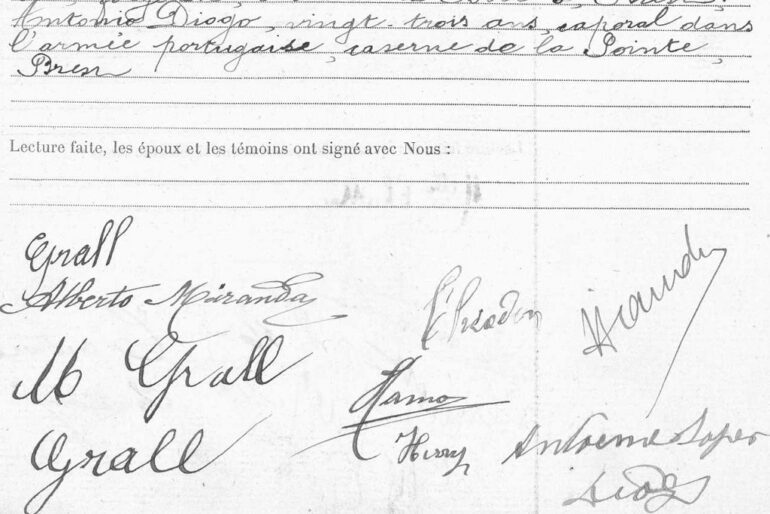 Antonio Diogo, vingt-trois ans, caporal dans
l'armée portugaise, caserne de la Pointe,
Brest
Lecture faite, les époux et les témoins ont signé avec Nous :
Grall
Alberto Miranda
M Grall
Hamon
Grall
Hirry
Antonio Lopes
Diogo